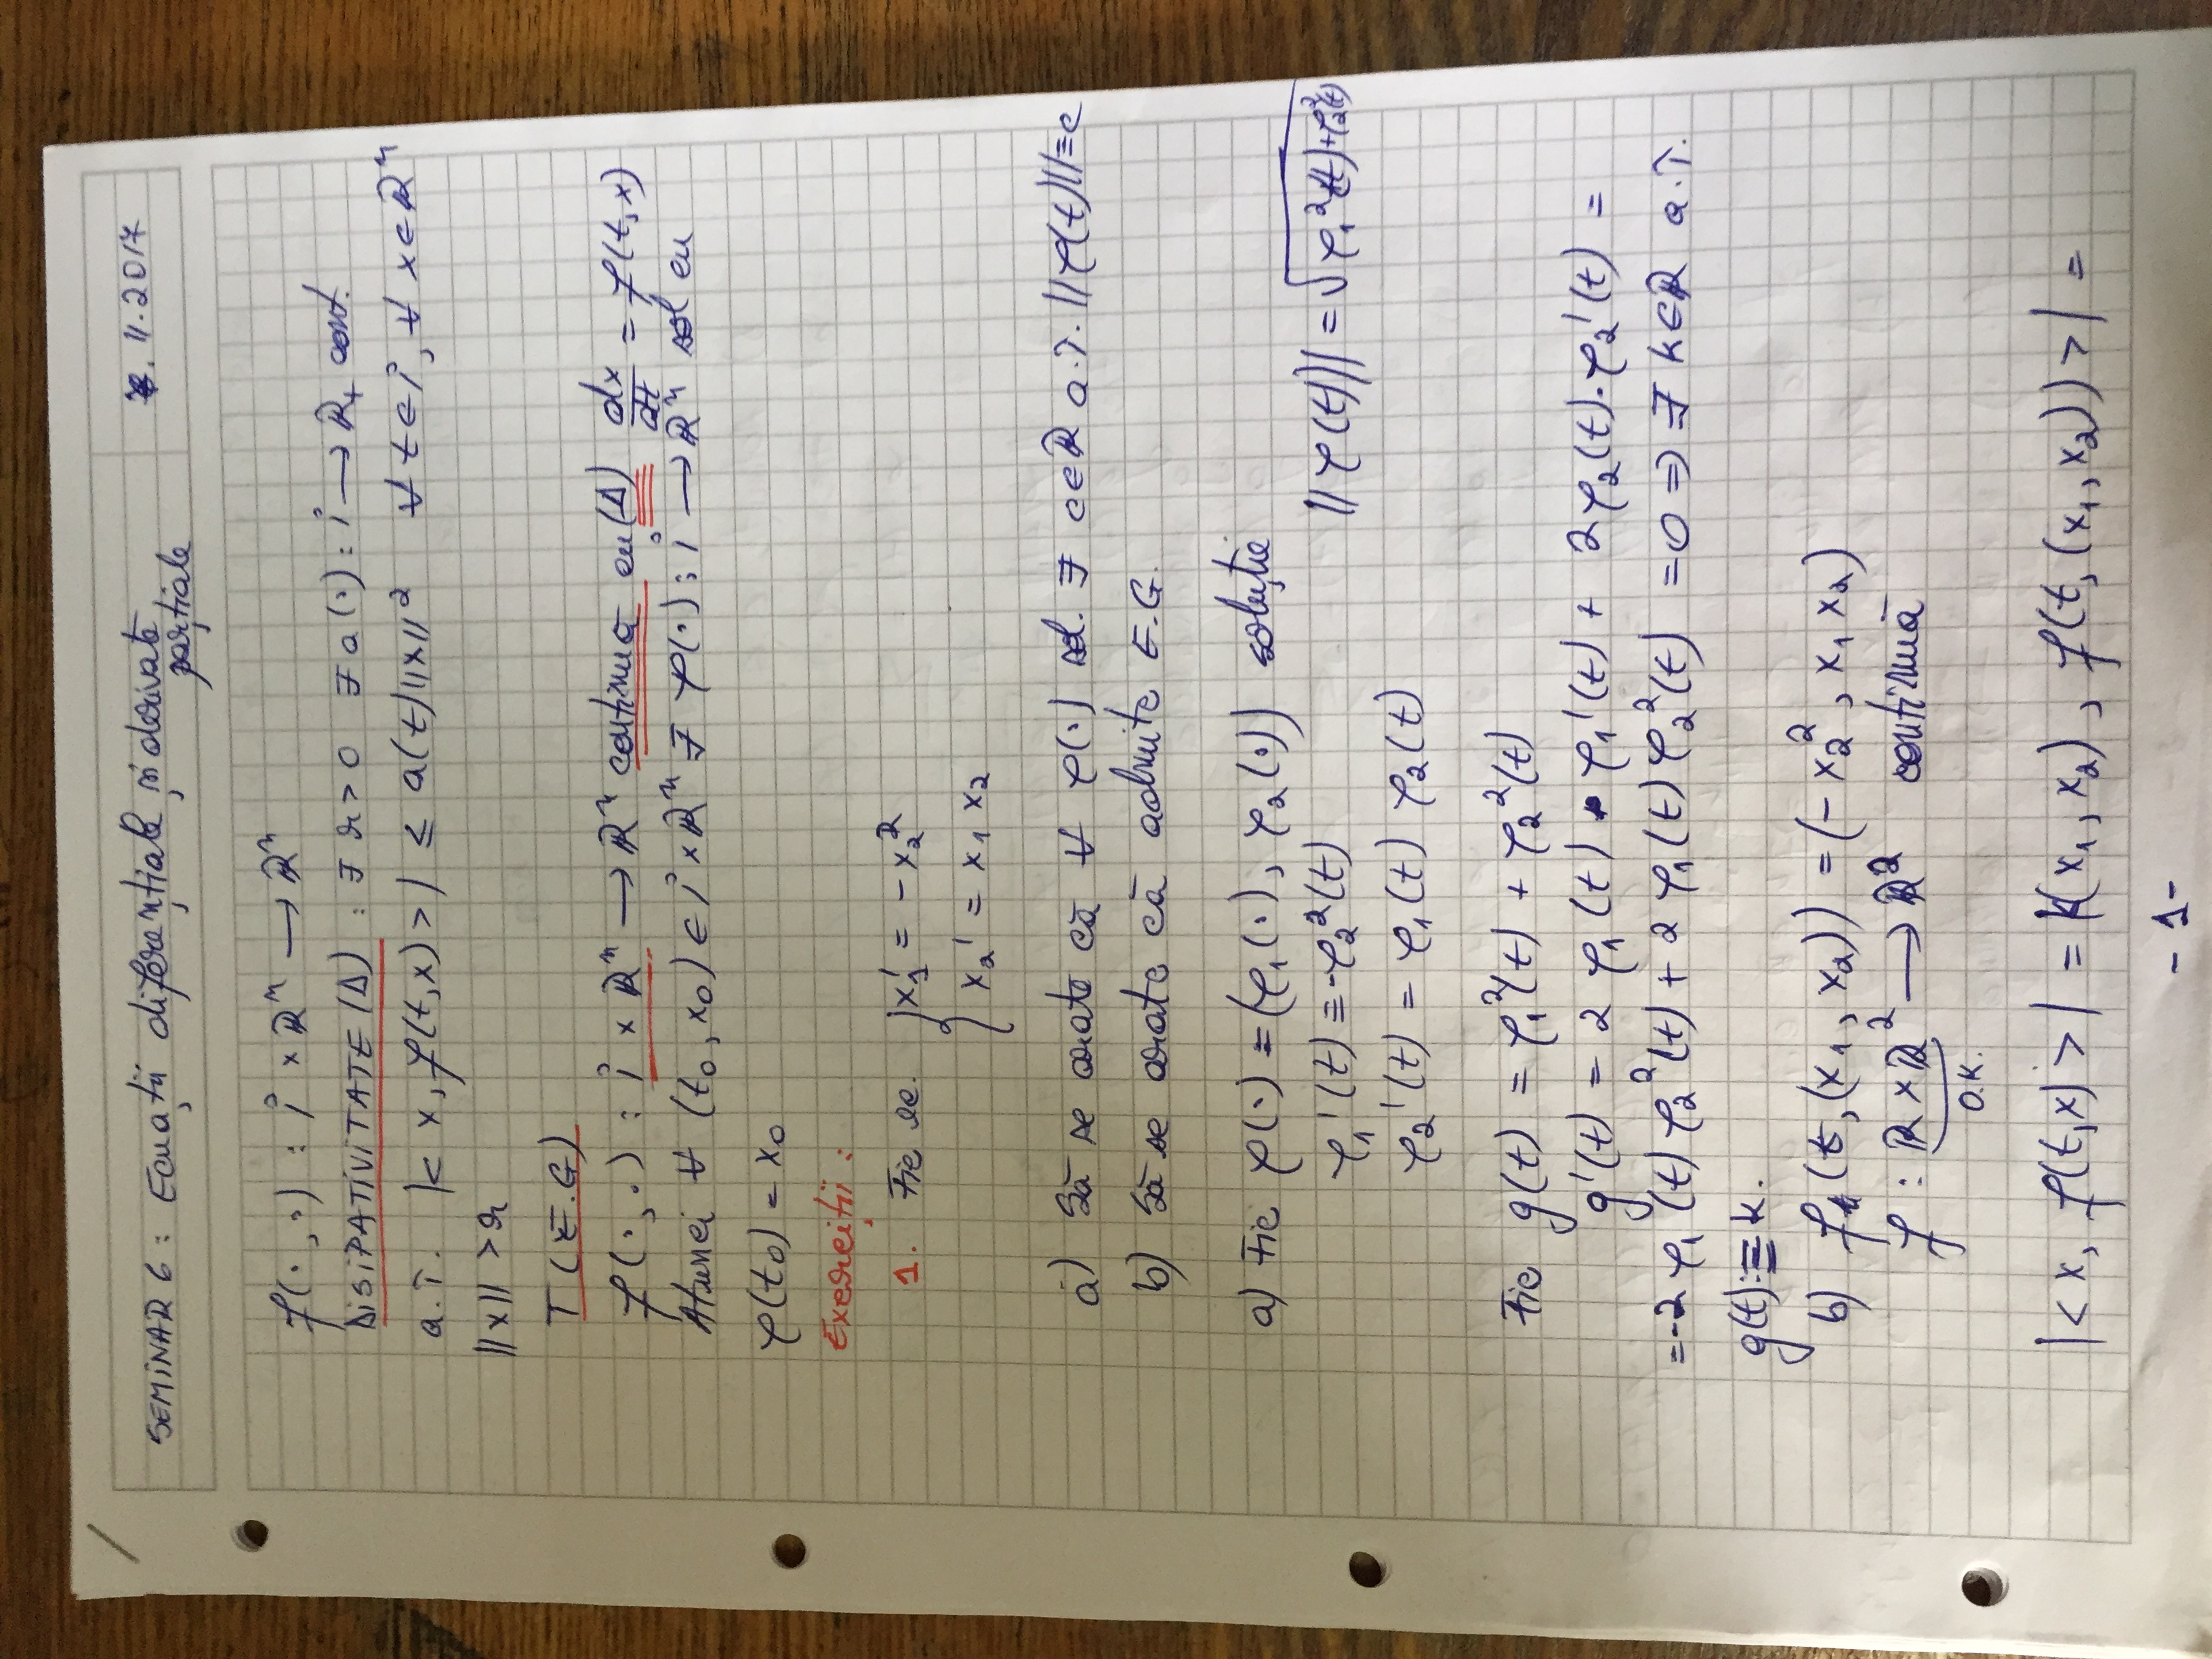 SEMINAR 6: Ecuații diferențiale și derivate
parțiale
.11.2017
f(·,·) : I × ℝⁿ → ℝⁿ
DISIPATIVITATE (Δ) : ∃ r > 0 ∃ a(·) : I → ℝ₊ cont.
a.î. |< x, f(t,x) >| ≤ a(t)||x||² ∀ t ∈ I, ∀ x ∈ ℝⁿ
||x|| > r
T (E.G)
f(·,·) : I × ℝⁿ → ℝⁿ continuă cu (Δ) dx/dt = f(t,x)
Atunci ∀ (t₀, x₀) ∈ I × ℝⁿ ∃ φ(·) : I → ℝⁿ sol cu
φ(t₀) = x₀
Exerciții :
1. Fie ec. { x₁' = - x₂²
x₂' = x₁ x₂
a) Să se arate că ∀ φ(·) sol. ∃ c∈ℝ a.î. ||φ(t)|| ≡ c
b) Să se arate că admite E.G.
a) Fie φ(·) = (φ₁(·), φ₂(·)) soluție
φ₁'(t) ≡ -φ₂²(t) ||φ(t)|| = √(φ₁²(t)+φ₂²(t))
φ₂'(t) = φ₁(t) φ₂(t)
Fie g(t) = φ₁²(t) + φ₂²(t)
g'(t) = 2 φ₁(t) · φ₁'(t) + 2φ₂(t)·φ₂'(t) =
= -2 φ₁(t) φ₂²(t) + 2 φ₁(t) φ₂²(t) = 0 ⇒ ∃ k∈ℝ a.î.
g(t) ≡ k.
b) f(t,(x₁, x₂)) = (- x₂², x₁ x₂)
f : ℝ × ℝ² → ℝ² continuă
O.K.
|< x, f(t,x) >| = |<(x₁, x₂), f(t, (x₁, x₂)) >| =
- 1 -